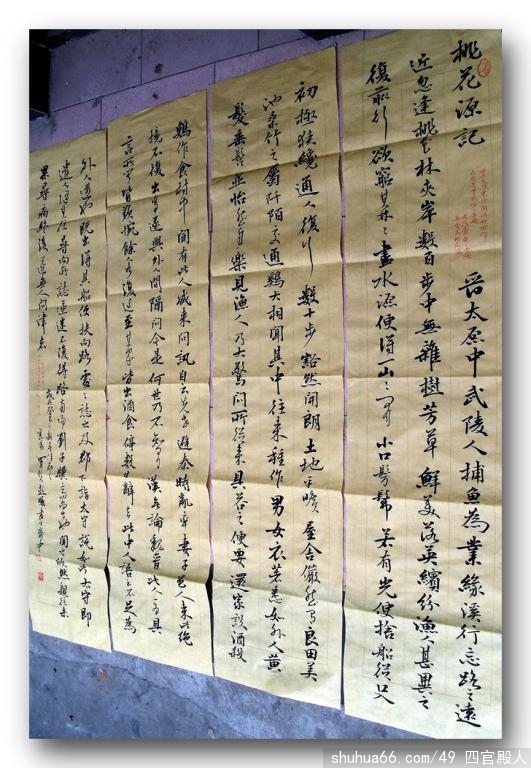 桃花源記 晉太原中武陵人捕魚為業緣溪行忘路之遠
近忽逢桃花林夾岸數百步中無雜樹芳草鮮美落英繽紛漁人甚異之
復前行欲窮其林林盡水源便得一山山有小口髣髴若有光便捨船從口入
初極狹纔通人復行數十步豁然開朗土地平曠屋舍儼然有良田美
池桑竹之屬阡陌交通鷄犬相聞其中往來種作男女衣著悉如外人黃
髮垂髫並怡然自樂見漁人乃大驚問所從來具答之便要還家設酒殺
鷄作食村中聞有此人咸來問訊自云先世避秦時亂率妻子邑人來此絕
境不復出焉遂與外人間隔問今是何世乃不知有漢無論魏晉此人一一為具
言所聞皆歎惋餘人各復延至其家皆出酒食停數日辭去此中人語云不足為
外人道也既出得其船便扶向路處處誌之及郡下詣太守說如此太守即
遣人隨其往尋向所誌遂迷不復得路南陽劉子驥高尚士也聞之欣然規往未
果尋病終後遂無人問津者
shuhua66.com/49 四官殿人